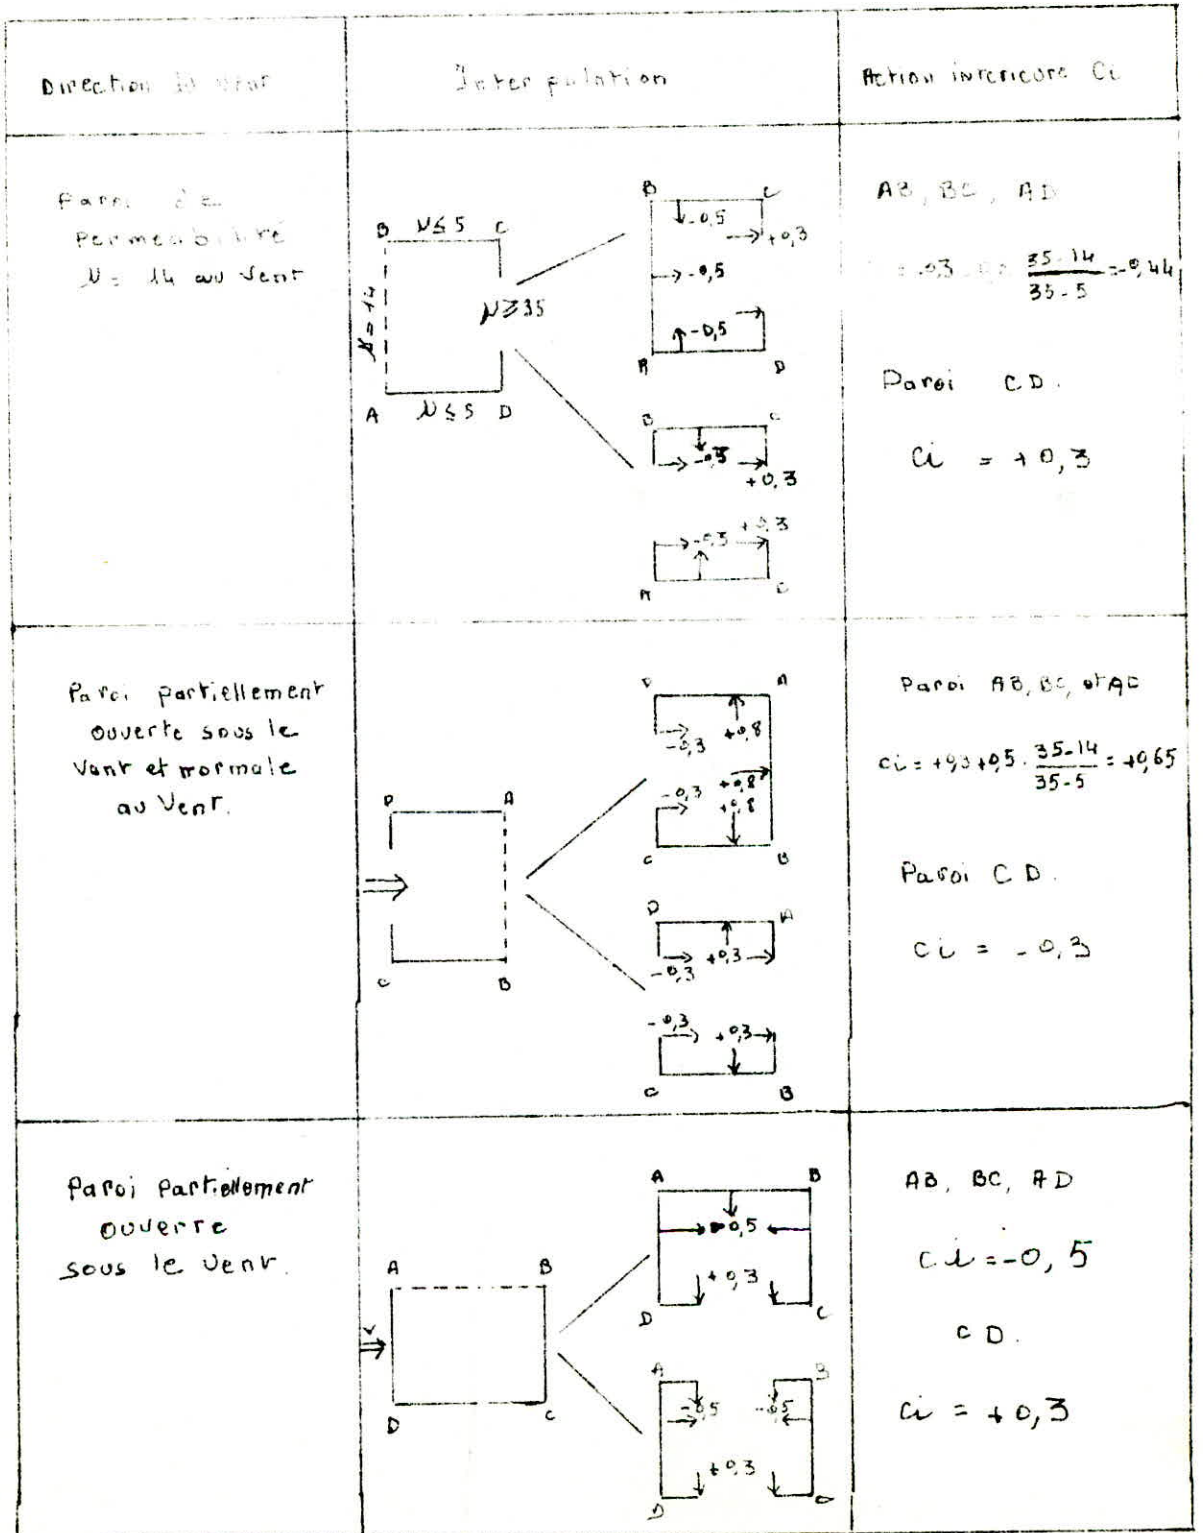 Direction du vent
Interpolation
Action interieure Ci
Paroi de
Permeabilité
μ = 14 au vent
B μ≤5 C
μ = 14
μ≥35
A μ≤5 D
B C
-0,5
+0,3
-0,5
-0,5
A D
B C
-0,3
+0,3
-0,3 +0,3
A D
AB, BC, AD
-0,3 35-14 / 35-5 = -0,44
Paroi CD.
Ci = +0,3
Paroi partiellement
ouverte sous le
vent et normale
au vent.
D A
C B
D A
-0,3 +0,8
-0,3 +0,8
+0,8
C B
D A
-0,3 +0,3
-0,3 +0,3
C B
Paroi AB, BC, et AD
ci = +0,3+0,5 . 35-14 / 35-5 = +0,65
Paroi CD.
ci = -0,3
Paroi partiellement
ouverte
sous le vent.
A B
v
D C
A B
-0,5
+0,3
D C
A B
-0,5 -0,5
+0,3
D
AB, BC, AD
ci = -0,5
CD.
ci = +0,3